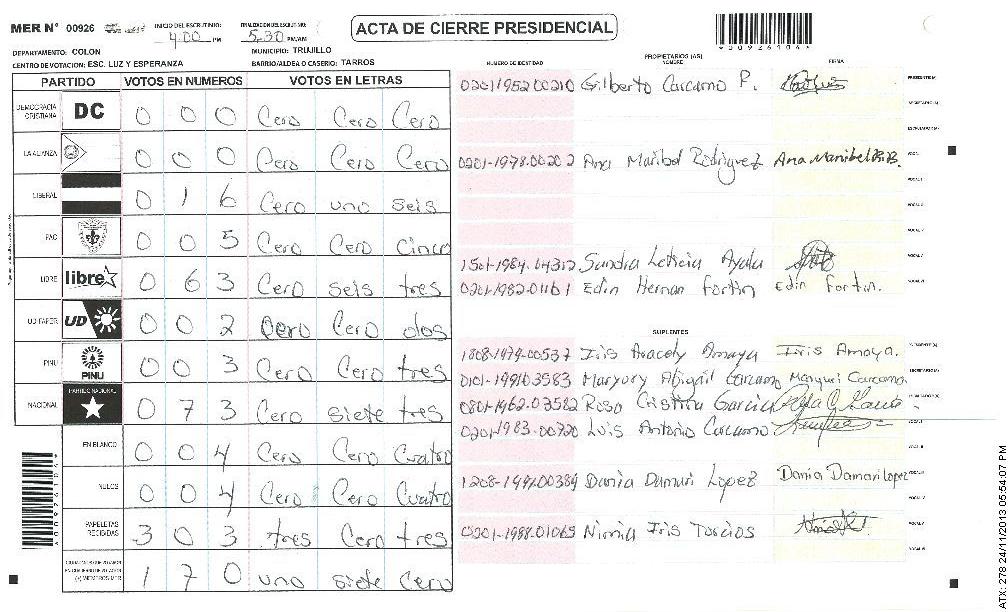 MER Nº 00926 INICIO DEL ESCRUTINIO: 4:00 PM FINALIZACION DEL ESCRUTINIO: 5:30 PM/AM
ACTA DE CIERRE PRESIDENCIAL
*00926106*
DEPARTAMENTO: COLON MUNICIPIO: TRUJILLO
CENTRO DE VOTACION: ESC. LUZ Y ESPERANZA BARRIO/ALDEA O CASERIO: TARROS
PARTIDO VOTOS EN NUMEROS VOTOS EN LETRAS
DEMOCRACIA CRISTIANA DC 0 0 0 Cero Cero Cero
LA ALIANZA 0 0 0 Cero Cero Cero
LIBERAL 0 1 6 Cero uno seis
PAC 0 0 5 Cero Cero cinco
LIBRE libre 0 6 3 Cero seis tres
UD FAPER UD 0 0 2 Cero Cero dos
PINU PINU 0 0 3 Cero Cero tres
NACIONAL PARTIDO NACIONAL 0 7 3 Cero siete tres
EN BLANCO 0 0 4 Cero Cero Cuatro
NULOS 0 0 4 Cero Cero Cuatro
PAPELETAS RECIBIDAS 3 0 3 tres Cero tres
1 7 0 uno siete Cero
NUMERO DE IDENTIDAD PROPIETARIOS (AS) NOMBRE FIRMA
0201195200210 Gilberto Carcamo P. PRESIDENTE(A)
SECRETARIO(A)
ESCRUTADOR(A)
0201-1978-00202 Ana Maribel Rodriguez Ana Maribel R.B.
1501-1984-04312 Sandra Leticia Ayala
0201-1982-01161 Edin Hernan Fortin Edin Fortin.
SUPLENTES
1808-1974-00537 Iris Aracely Amaya Iris Amaya. PRESIDENTE(A)
0101-1991-03583 Maryury Abigail Carcamo Maryuri Carcamo SECRETARIO(A)
0801-1962-03582 Rosa Cristina Garcia
0201-1983-00720 Luis Antonio Carcamo
1208-1991-00384 Dania Damari Lopez Dania Damari Lopez
0201-1988-01065 Nimia Iris
*00926106*
ATX: 278 24/11/2013 05:54:07 PM